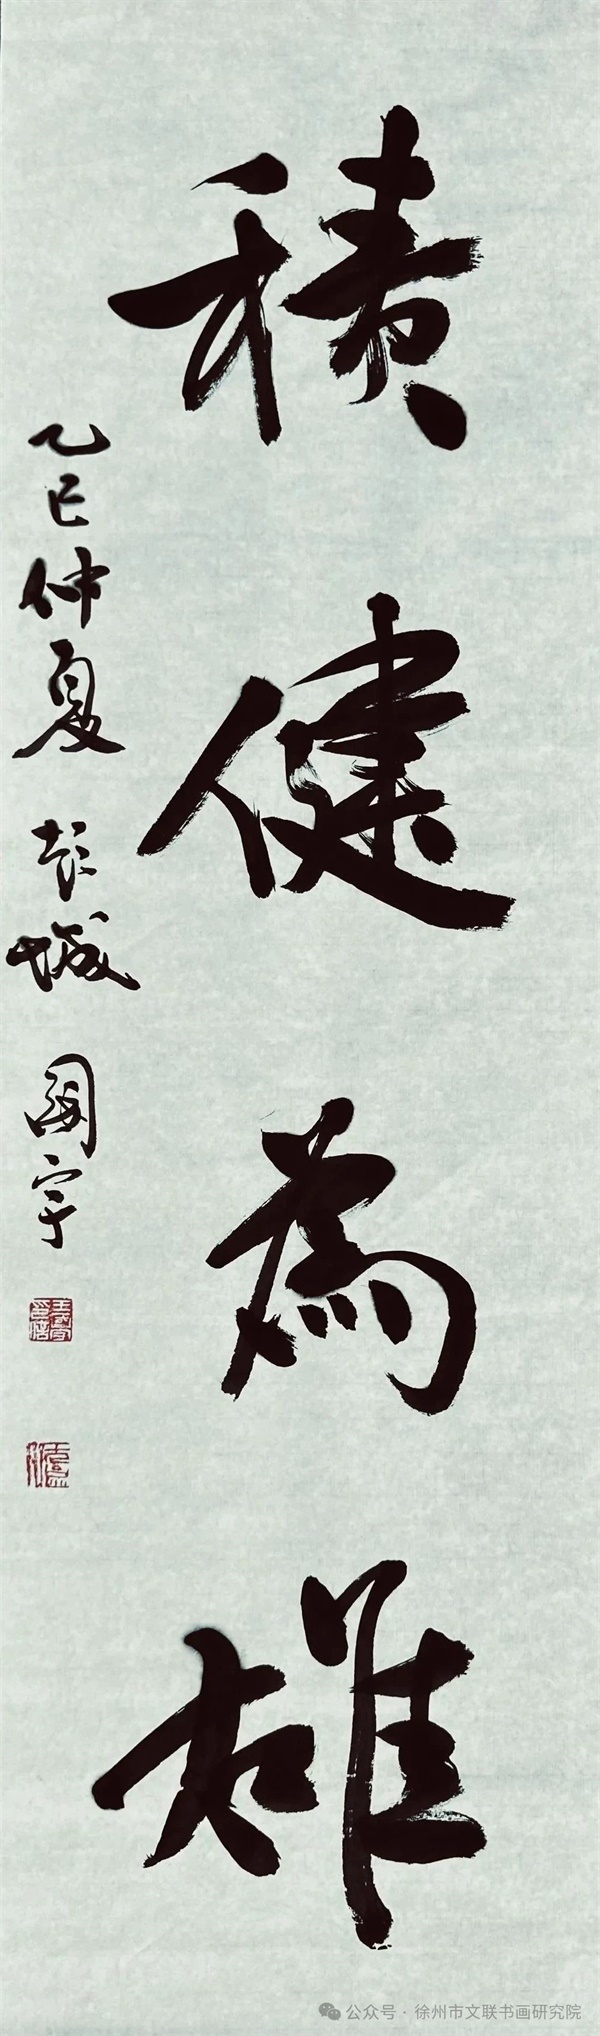 積健為雄
乙巳仲夏 彭城 國宇
公众号 · 徐州市文联书画研究院